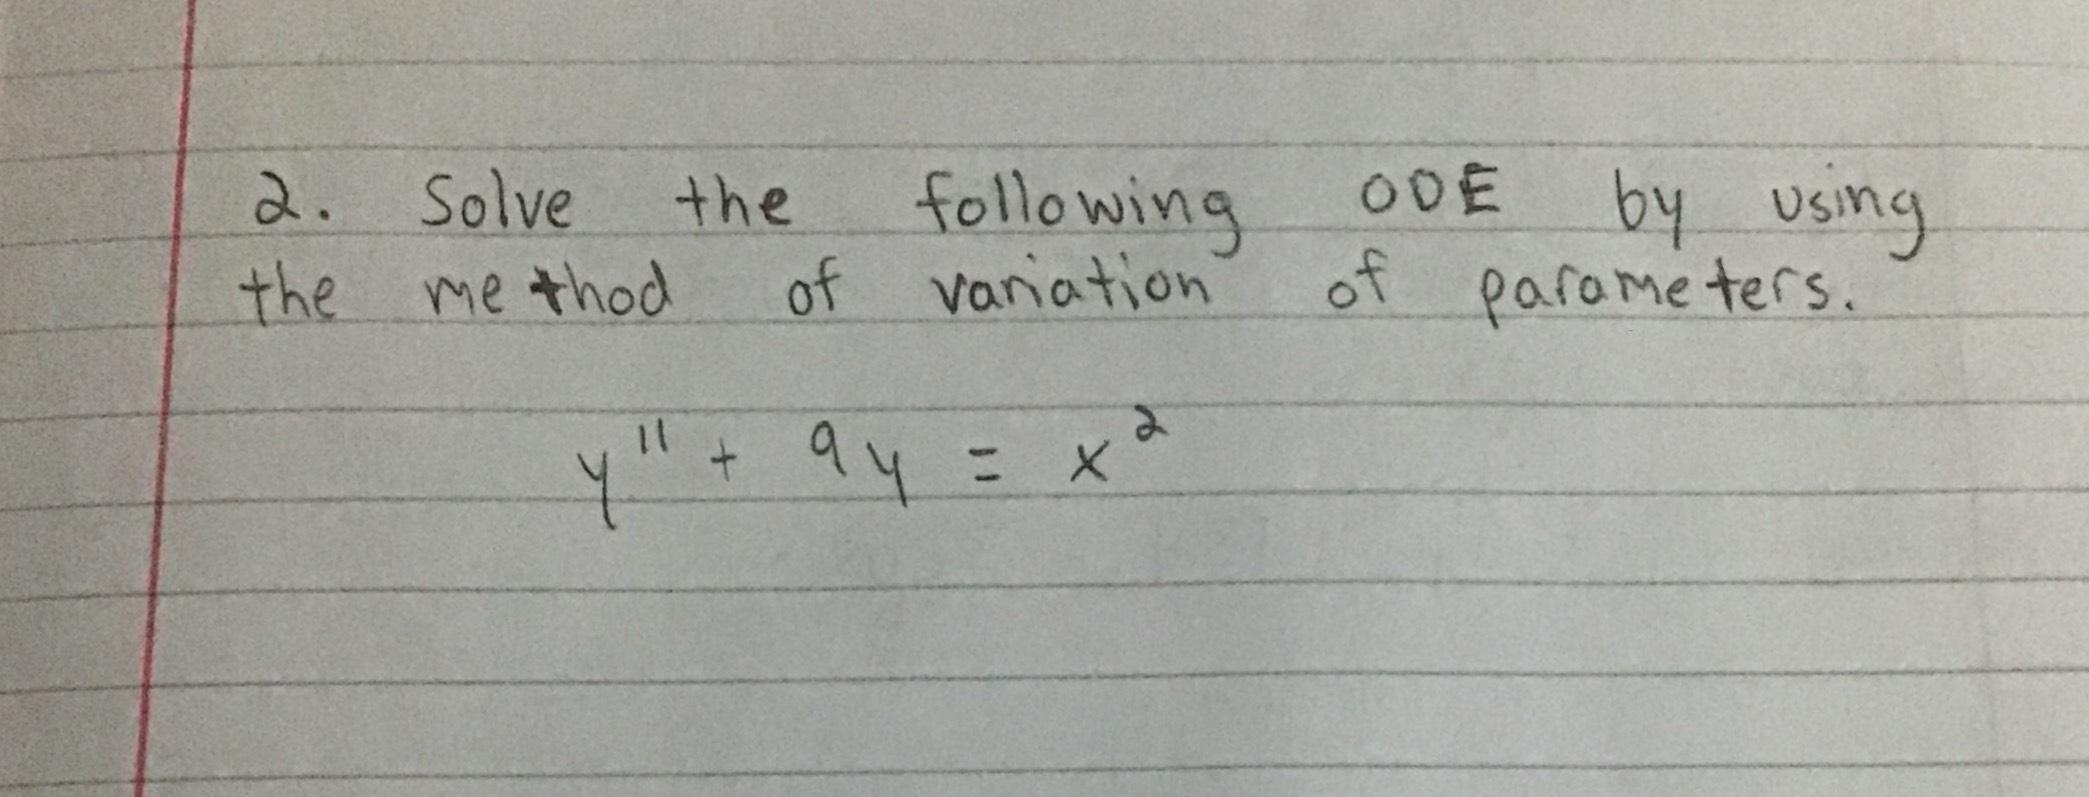 2. Solve the following ODE by using
the method of variation of parameters.
y'' + 9y = x²